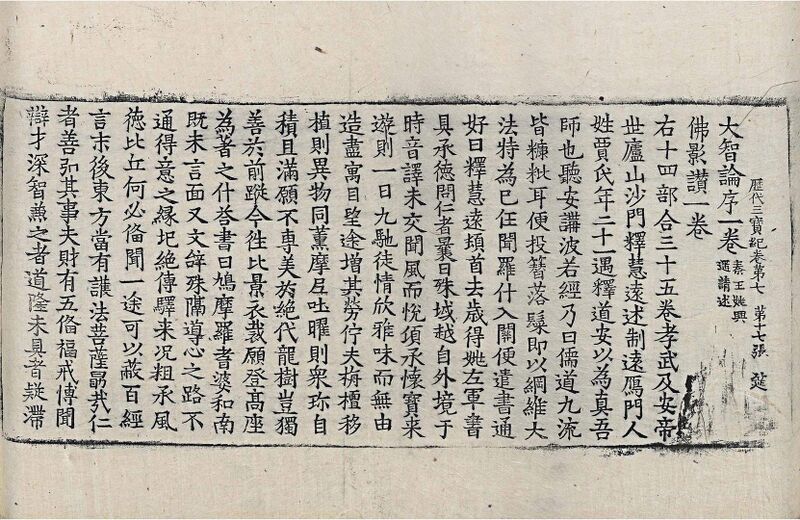 歷代三寶紀卷第七　第十七張　筵
大智論序一卷 秦王姚興還請述
佛影讚一卷
右十四部合三十五卷孝武及安帝
世廬山沙門釋慧遠述制遠鴈門人
姓賈氏年二十一遇釋道安以為真吾
師也聽安講波若經乃曰儒道九流
皆糠粃耳便投簪落髮即以綱維大
法特為己任聞羅什入關便遣書通
好曰釋慧遠頓首去歲得姚左軍書
具承德問仁者曩日殊域越自外境于
時音譯未交聞風而悅頃承懷寶来
遊則一日九馳徒情欣雅味而無由
造盡寓目望途增其勞佇夫栴檀移
植則異物同薰摩尼吐曜則衆珎自
積且滿願不專美於絕代龍樹豈獨
善於前蹤今往比量衣裁願登高座
為著之什荅書曰鳩摩羅耆婆和南
既未言面又文辭殊隔導心之路不
通得意之緣圮絕傳驛来况粗承風
德比丘何必俻聞一途可以蔽百經
言末後東方當有護法菩薩勗哉仁
者善弘其事夫財有五俻福戒博聞
辯才深智兼之者道隆未具者疑滯